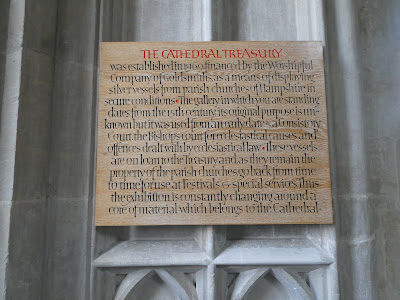 THE CATHEDRAL TREASURY
was established in 1969 financed by the Worshipful
Company of Goldsmiths, as a means of displaying
silver vessels from parish churches of Hampshire in
secure conditions. The gallery in which you are standing
dates from the 15th century, its original purpose is un-
known but it was used from an early date as a Consistory
Court, the Bishop's court for ecclesiastical causes and
offences dealt with by ecclesiastical law. These vessels
are on loan to the Treasury and as they remain the
property of the parish churches, go back from time
to time for use at festivals & special services. Thus
the exhibition is constantly changing around a
core of material which belongs to the Cathedral